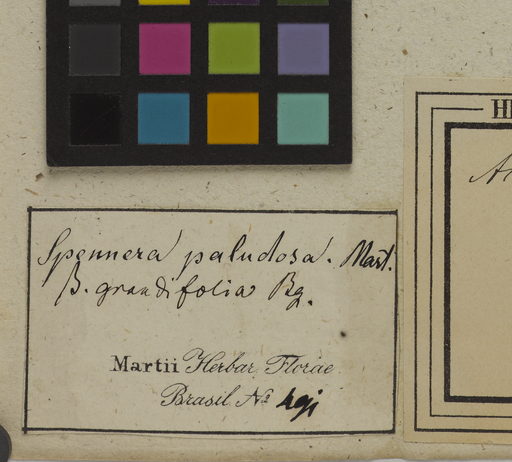 Spennera paludosa. Mart.
β. grandifolia Bg.
Martii Herbar. Florae
Brasil. No
H
A